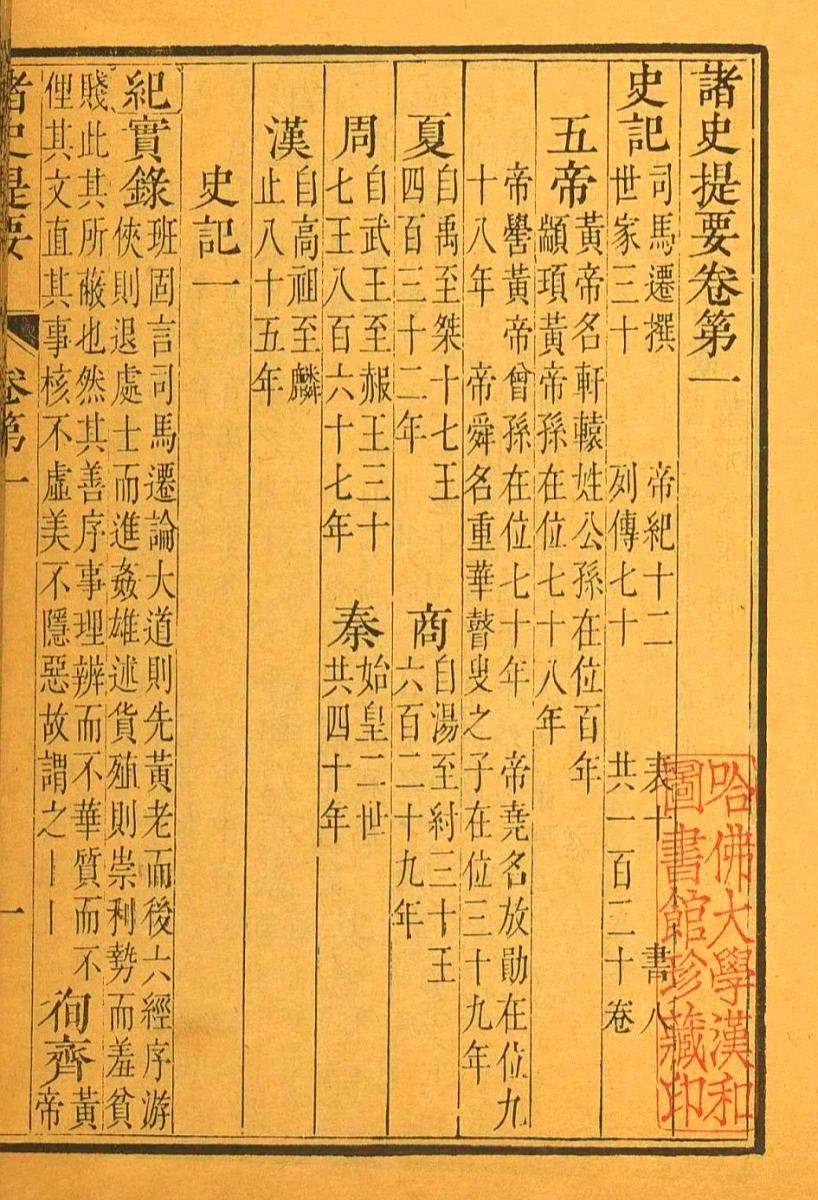 諸史提要卷第一
史記司馬遷撰 帝紀十二 表十 書八
世家三十 列傳七十 共一百二十卷
五帝黃帝名軒轅姓公孫在位百年
顓頊黃帝孫在位七十八年
帝嚳黃帝曾孫在位七十年 帝堯名放勛在位九
十八年 帝舜名重華瞽叟之子在位三十九年
夏自禹至桀十七王
四百三十二年
商自湯至紂三十王
六百二十九年
周自武王至赧王三十
七王八百六十七年
秦始皇二世
共四十年
漢自高祖至麟
止八十五年
史記一
紀實錄班固言司馬遷論大道則先黃老而後六經序游
俠則退處士而進姦雄述貨殖則崇利勢而羞貧
賤此其所蔽也然其善序事理辨而不華質而不
俚其文直其事核不虛美不隱惡故謂之｜｜
徇齊黃
帝
諸史提要 卷第一 一
哈佛大學漢和
圖書館珍藏印